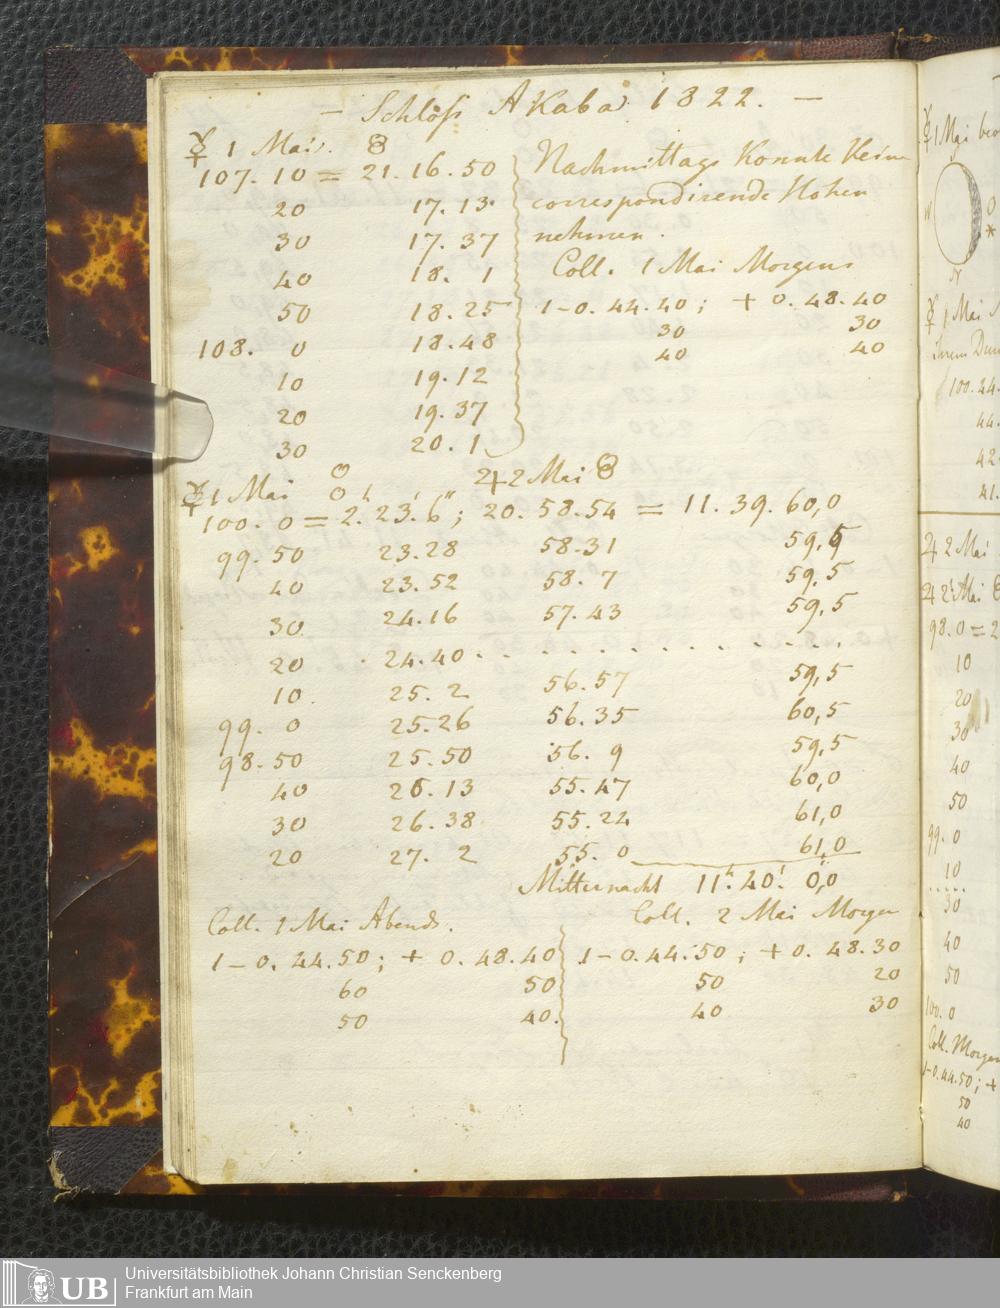 — Schloss Akaba 1822. —
☿ 1 Mai.
107. 10 = 21. 16. 50
20 17. 13
30 17. 37
40 18. 1
50 18. 25
108. 0 18. 48
10 19. 12
20 19. 37
30 20. 1
Nachmittags konnte keine
correspondirende Hohen
nehmen.
Coll. 1 Mai Morgens
1 – 0. 44. 40 ; + 0. 48. 40
30 30
40 40
☿ 1 Mai ♃ 2 Mai
100. 0 = 2. 23. 6" ; 20. 58. 54 = 11. 39. 60,0
99. 50 23. 28 58. 31 59,5
40 23. 52 58. 7 59,5
30 24. 16 57. 43 59,5
20 · 24. 40 . . . . . . . . . . . .
10 25. 2 56. 57 59,5
99. 0 25. 26 56. 35 60,5
98. 50 25. 50 56. 9 59,5
40 26. 13 55. 47 60,0
30 26. 38 55. 22 61,0
20 27. 2 55. 0 61,0
Mitternacht 11h. 40'. 0,0
Coll. 1 Mai Abends.
1 – 0. 44. 50 ; + 0. 48. 40
60 50
50 40.
Coll. 2 Mai Morgen
1 – 0. 44. 50 ; + 0. 48. 30
50 20
40 30
☿ 1 Mai
W
N
☿ 1 Mai
100. 44.
44.
42
41.
♃ 2 Mai
♃ 2 Mai
98. 0 = 2
10
20
30
40
50
99. 0
10
. . . . .
30
40
50
100. 0
Coll. Morgen
1 – 0. 44. 50 ; +
50
40
UB
Universitätsbibliothek Johann Christian Senckenberg
Frankfurt am Main